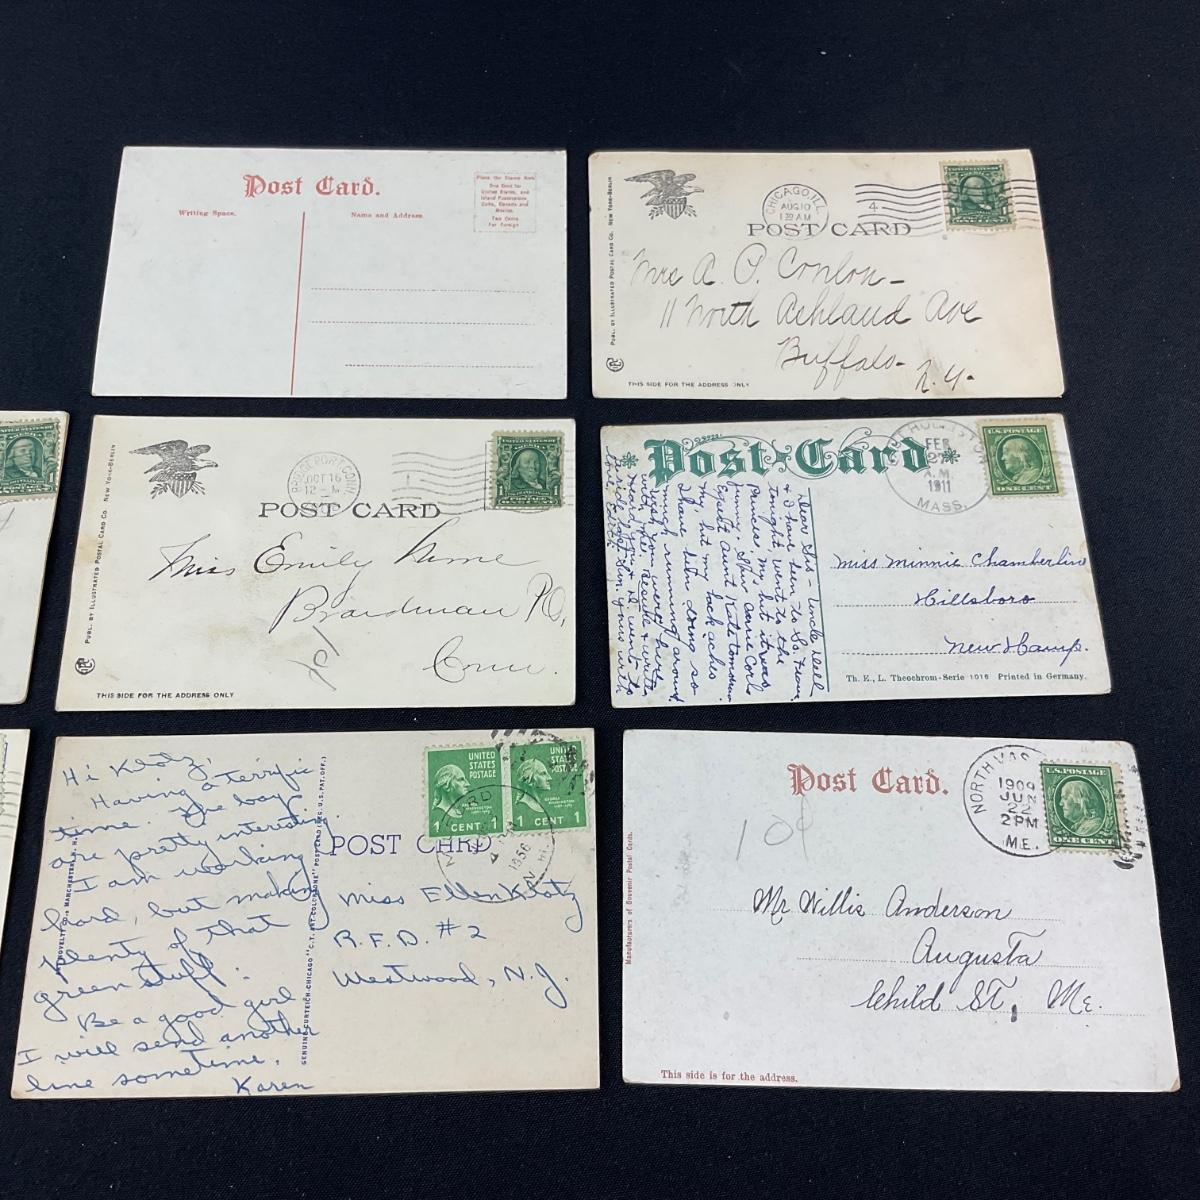 Post Card.
Writing Space.
Name and Address.
Place the Stamp Here
One Cent for
United States, and
Island Possessions
Cuba, Canada and
Mexico.
Two Cents
For Foreign
PUBL. BY ILLUSTRATED POSTAL CARD CO. NEW YORK-BERLIN
CHICAGO, ILL.
AUG 10
AM
4
POST CARD
Mrs A. P. Conlon-
11 North Ashland Ave
Buffalo-
N. Y.
THIS SIDE FOR THE ADDRESS ONLY
PUBL. BY ILLUSTRATED POSTAL CARD CO. NEW YORK-BERLIN
BRIDGEPORT, CONN.
OCT 16
12-M
1
POST CARD
Miss Emily
Boardman P.O.,
Conn.
THIS SIDE FOR THE ADDRESS ONLY
Post Card
FEB
A.M.
1911
MASS.
U.S. POSTAGE
ONE CENT
Dear Sis - Uncle Dell
& I have been to
tonight went to the
Princess my but it was
funny, Saw Carrie Corls
Expect Aunt Kate tomorrow
my, but my back aches
I have been doing so
much running around
wish you were here
with me. Desire & write
Miss Minnie Chamberlin
Hillsboro
New Hamp.
Th. E., L. Theochrom-Serie 1016 Printed in Germany.
Hi Klotz,
Having a terrific
time. The boys
are pretty interesting.
I am working
hard, but making
plenty of that
green stuff.
Be a good girl
I will send another
line sometime.
Karen
GENUINE CURTEICH-CHICAGO "C.T. ART-COLORTONE" POST CARD (REG. U.S. PAT. OFF.)
POST CARD
UNITED
STATES
POSTAGE
1 CENT 1
UNITED
STATES
POSTAGE
1 CENT 1
1956
N.H.
Miss Ellen Klotz
R.F.D. #2
Westwood, N.J.
Post Card.
NORTH VAS
1909
JUN
22
2 PM
ME.
U.S. POSTAGE
ONE CENT
10¢
Manufacturers of Souvenir Postal Cards.
Mr Willis Anderson
Augusta
Child St, Me.
This side is for the address.